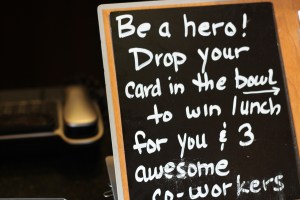 Be a hero!
Drop your
card in the bowl
to win lunch
for you & 3
awesome
co-workers